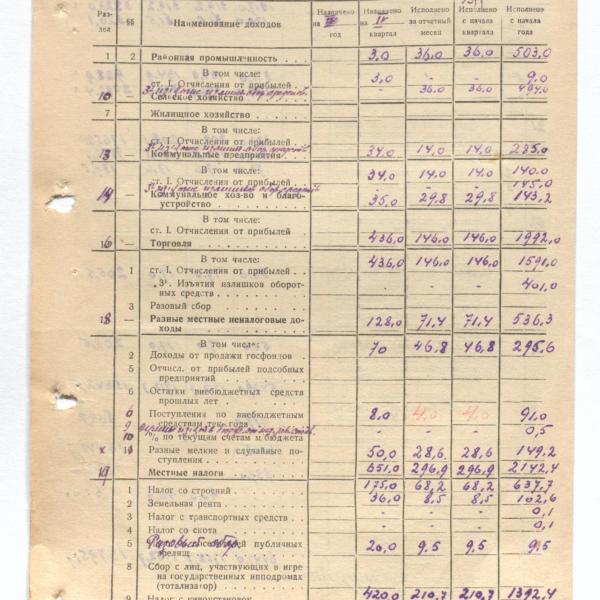 Раз-
дел
§§
Наименование доходов
Назначено на IV год
Назначено на IV квартал
Исполнено за отчетный месяц
Исполнено с начала квартала
Исполнено с начала года
1 2 Районная промышленность 3,0 36,0 36,0 503,0
В том числе:
ст. I. Отчисления от прибылей 3,0 - - 9,0
- 36,0 36,0 494,0
10 — Сельское хозяйство
7 Жилищное хозяйство
В том числе:
ст. I. Отчисления от прибылей
13 — Коммунальные предприятия 34,0 14,0 14,0 285,0
В том числе:
ст. I. Отчисления от прибылей 34,0 14,0 14,0 140,0
145,0
14 — Коммунальное хоз-во и благо-
устройство 35,0 29,8 29,8 143,2
В том числе:
ст. I. Отчисления от прибылей
16 — Торговля 436,0 146,0 146,0 1992,0
В том числе:
1 ст. I. Отчисления от прибылей 436,0 146,0 146,0 1591,0
3¹. Изъятия излишков оборот-
ных средств 401,0
3 Разовый сбор
18 — Разные местные неналоговые до-
ходы 128,0 71,4 71,4 536,3
В том числе:
2 Доходы от продажи госфондов 70 46,8 46,8 295,6
5 Отчисл. от прибылей подсобных
предприятий
6 Остатки внебюджетных средств
прошлых лет
6 Поступления по внебюджетным
средствам тек. года 8,0 4,0 4,0 91,0
9 - - - 0,5
10 % по текущим счетам м бюджета
х 11 Разные мелкие и случайные по-
ступления 50,0 28,6 28,6 149,2
19 Местные налоги 651,0 296,9 296,9 2142,4
1 Налог со строений 175,0 68,2 68,2 637,7
2 Земельная рента 36,0 8,5 8,5 102,6
3 Налог с транспортных средств - - - 0,1
4 Налог со скота - - - 0,1
5 публичных
зрелищ 20,0 9,5 9,5 9,5
8 Сбор с лиц, участвующих в игре
на государственных ипподромах
(тотализатор)
9 Налог с киноустановок 420,0 210,7 210,7 1392,4